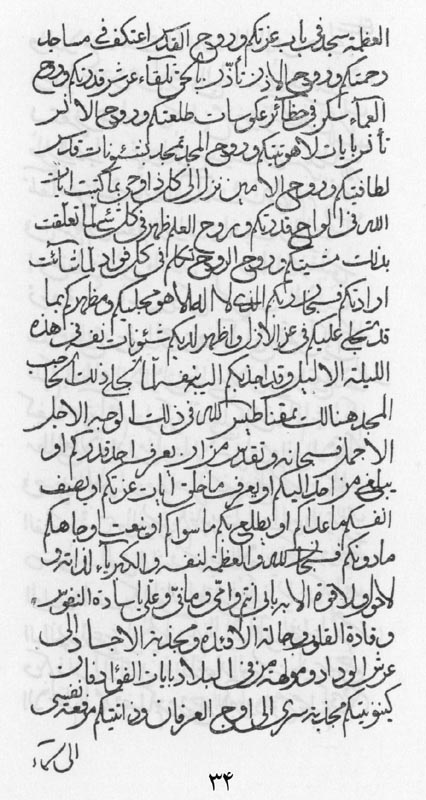 العظمة سجد في باب عزتكم وروح القدر اعتكف في مساجد
رحمتكم وروح الاذن تلقاء عرش قدرتكم وروح
العماء سكن في حظائر عكوسات طلعتكم وروح الامر
بايات لاهوتيتكم وروح المجد تمجد بشئونات قدس
وروح الامين نزل الى كل ذي روح بما كتبت ايات
الله في الواح قدرتكم وروح العلم ظهر في كل شيء لما تعلقت
بذات مشيتكم وروح الروح تكلم في كل فؤاد لما شائت
ارادتكم فسبحان ربكم الذي لا اله الا هو مجليكم ومظهركم بما
قد تجلى عليكم في عز الازل واظهر لديكم شئونات نفسه في هذه
الليلة الاليل وقد اجذبكم اليه بنفسه لما تجلى ذلك الحاجب
المجد هنالك بمقناطيس الله في ذلك الوجه الاجلل
الاجمل فسبحانه وتقدس من ان يعرف احد قدركم او
يبلغ من احد اليكم او يعرف ما خلق ايات عزتكم او يصف
انفسكم ما عداكم او يطلع بكم ما سواكم او ينعت وجاهكم
ما دونكم فسبحان الله والعظمة لنفسه والكبرياء لذاته و
لا حول ولا قوة الا به بابي انتم وامي ومائي وعلى يا سادة النفوس
وقادة القلوب وجالبة الافئدة ومجذبة الاجساد الى
عرش الوداد ومولهة من في البلاد بايات الفؤاد فان
كينونيتكم مجذبة سري الى اوج العرفان وذاتيتكم مرفعة نفسي
الى سماء
٣٤